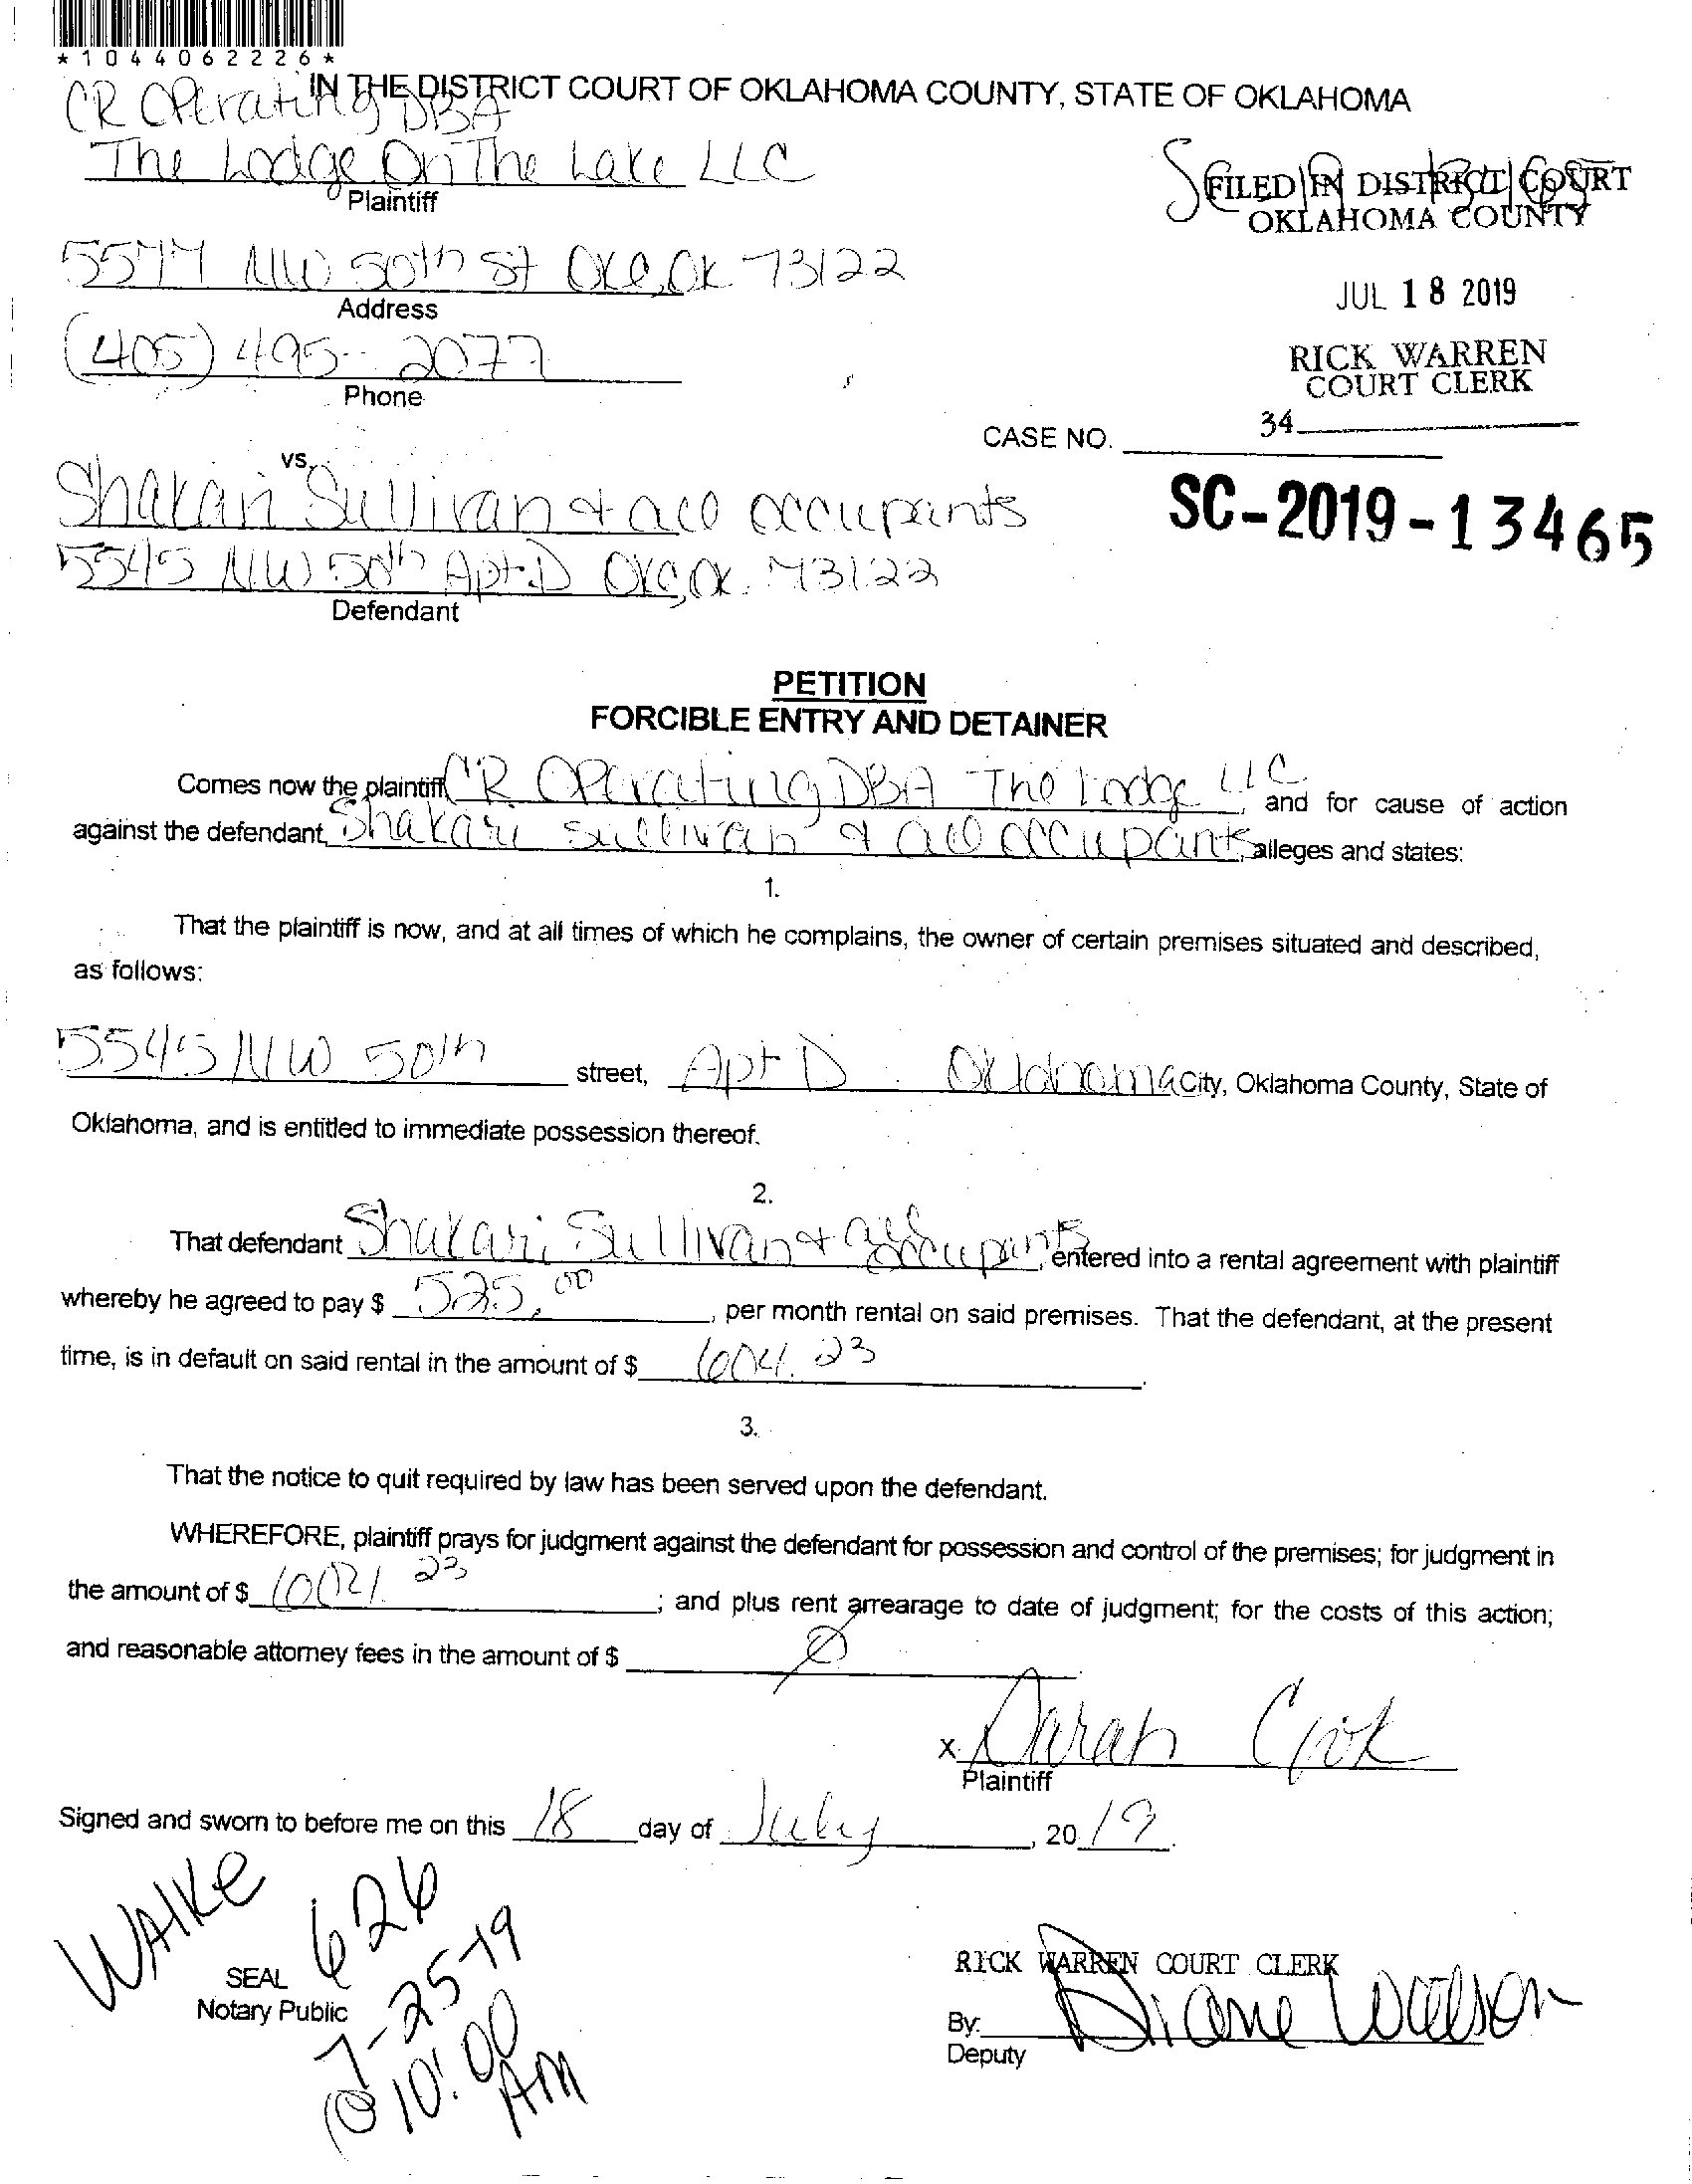 *1044062226*
IN THE DISTRICT COURT OF OKLAHOMA COUNTY, STATE OF OKLAHOMA
CR Operating DBA
The Lodge On The Lake LLC
Plaintiff
FILED IN DISTRICT COURT
OKLAHOMA COUNTY
5577 NW 50th St OKC, OK 73122
Address
JUL 18 2019
(405) 495-2077
Phone
RICK WARREN
COURT CLERK
34
CASE NO.
SC-2019-13465
vs.
Shakari Sullivan & all occupants
5545 NW 50th Apt. D OKC, OK. 73122
Defendant
PETITION
FORCIBLE ENTRY AND DETAINER
Comes now the plaintiff CR Operating DBA The Lodge LLC, and for cause of action
against the defendant, Shakari Sullivan & all occupants, alleges and states:
1.
That the plaintiff is now, and at all times of which he complains, the owner of certain premises situated and described,
as follows:
5545 NW 50th street, Apt D Oklahoma City, Oklahoma County, State of
Oklahoma, and is entitled to immediate possession thereof.
2.
That defendant Shakari Sullivan & all occupants, entered into a rental agreement with plaintiff
whereby he agreed to pay $ 525.00, per month rental on said premises. That the defendant, at the present
time, is in default on said rental in the amount of $ 604.23.
3.
That the notice to quit required by law has been served upon the defendant.
WHEREFORE, plaintiff prays for judgment against the defendant for possession and control of the premises; for judgment in
the amount of $ 23; and plus rent arrearage to date of judgment; for the costs of this action;
and reasonable attorney fees in the amount of $ Ø
X Darah Cook
Plaintiff
Signed and sworn to before me on this 18 day of July, 2019.
WAIKE
626
7-25-19
@ 10:00
AM
SEAL
Notary Public
RICK WARREN COURT CLERK
By: Diane Wilson
Deputy